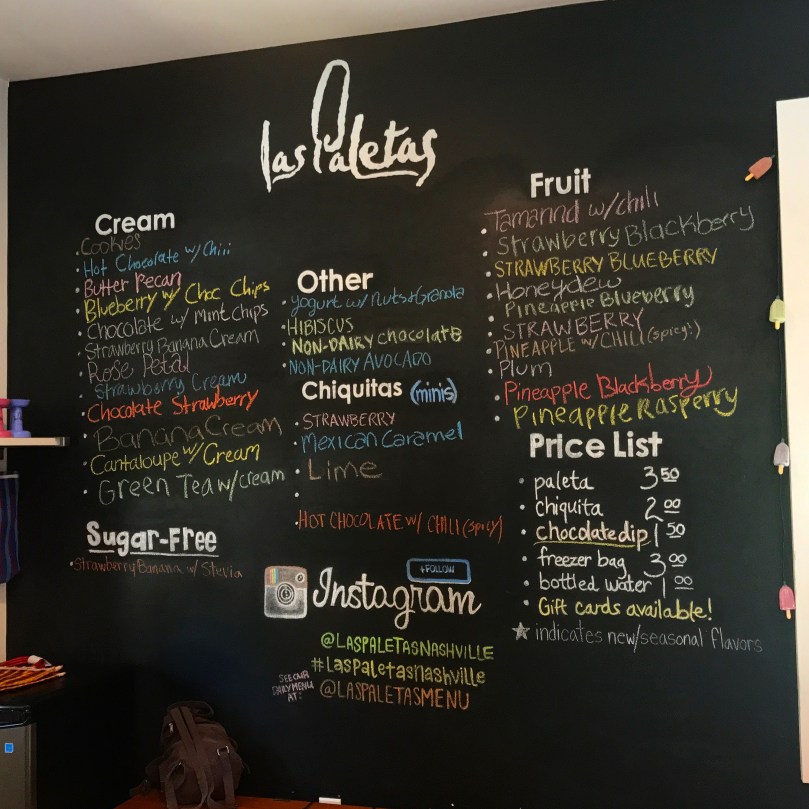 las Paletas
Cream
Cookies
Hot Chocolate w/ Chili
Butter Pecan
Blueberry w/ Choc Chips
Chocolate w/ Mint Chips
Strawberry Banana Cream
Rose Petal
Strawberry Cream
Chocolate Strawberry
Banana Cream
Cantaloupe w/ Cream
Green Tea w/ cream
Sugar-Free
Strawberry Banana w/ Stevia
Other
Yogurt w/ Nuts & Granola
HIBISCUS
NON-DAIRY chocolate
NON-DAIRY AVOCADO
Chiquitas (minis)
STRAWBERRY
Mexican Caramel
Lime
HOT CHOCOLATE w/ CHILI (spicy)
+FOLLOW
Instagram
@LASPALETASNASHVILLE
#laspaletasnashville
SEE OUR
DAILY MENU
AT:
@LASPALETASMENU
Fruit
Tamarind w/ chili
Strawberry Blackberry
STRAWBERRY BLUEBERRY
Honeydew
Pineapple Blueberry
STRAWBERRY
PINEAPPLE w/ CHILI (spicy!)
Plum
Pineapple Blackberry
Pineapple Rasperry
Price List
paleta 3 50
chiquita 2 00
chocolate dip 1 50
freezer bag 3 00
bottled water 1 00
Gift cards available!
★ indicates new/seasonal flavors